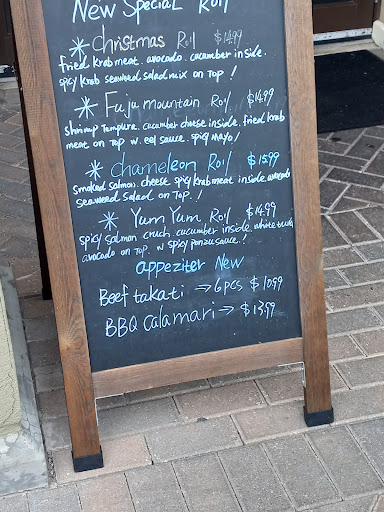 New Special Roll
* Christmas Roll $14.99
fried krab meat. avocado. cucumber inside.
spicy krab seaweed salad mix on Top !
* Fuji mountain Roll $14.99
shrimp Tempura. cucumber cheese inside. fried krab
meat on Top w. eel sauce. spicy mayo!
* Chameleon Roll $15.99
smoked salmon. cheese. spicy krab meat inside. avocado
seaweed salad on Top. !
* Yum Yum Roll $14.99
spicy salmon cruch cucumber inside. white tuna
avocado on Top. w spicy ponzu sauce. !
appeziter New
Beef takati → 6pcs $10.99
BBQ Calamari → $13.99